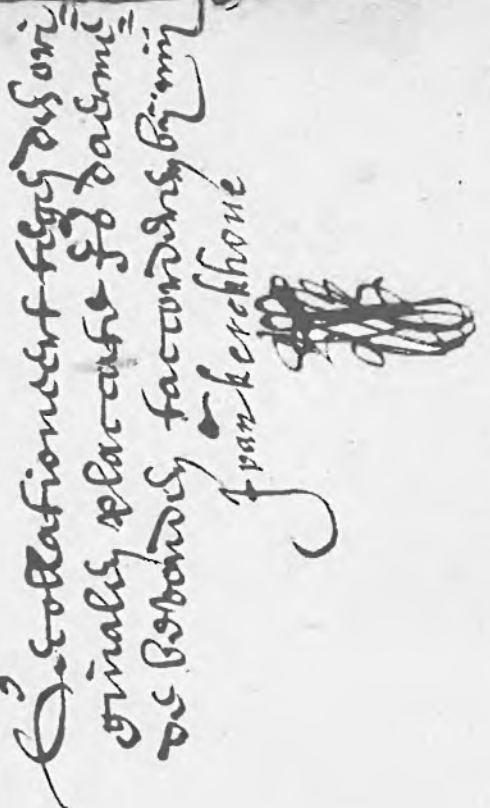 Gecollationeert tegen den ori
ginalen placcate es daermede
de bevonden taccorderen by my
J van kerckhoue